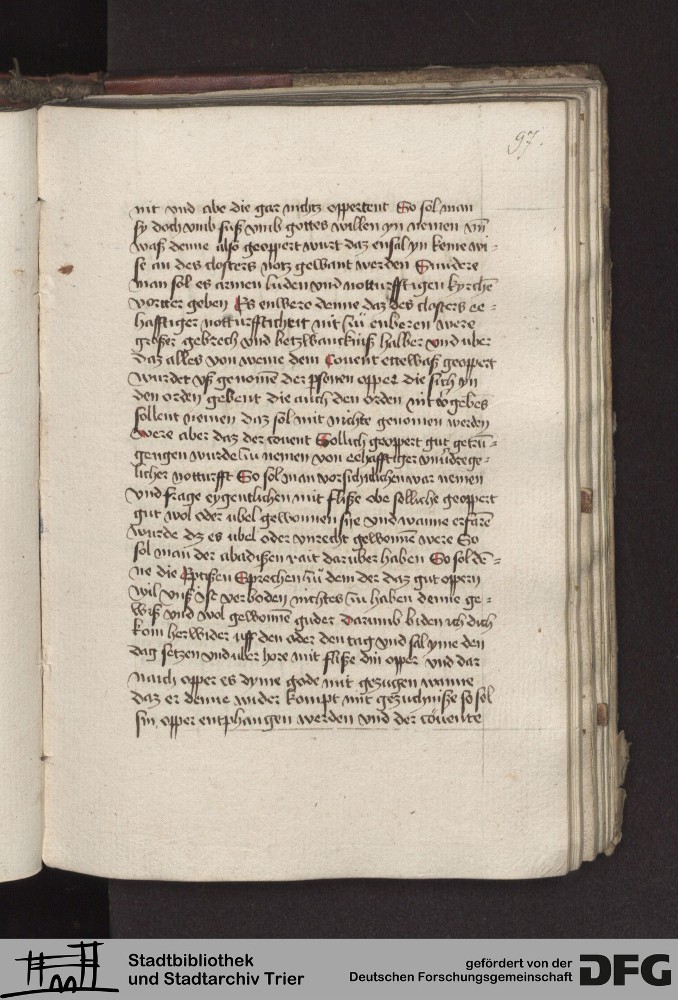 97.
nit vnd abe die gar nichtz oppertent So sol man
sy doch vmb suß vmb gottes willen yn nemen vn̄
waß denne also geoppert wurt daz ensal yn keine wi-
se an des closters notz gewant werden Sundere
man sol es armen luden vnd notturfftigen kyrchē
vortter geben Es enwere denne daz des closters ee-
hafftiger notturfftichkeit nit zu enberen were
großer gebrech vnd betzwancknüß halber vnd uber
daz alles von weme dem Couent ettewaß geoppert
wurdet vß genomē der psonen opper die sich yn
den orden gebent die auch den orden nit vgebēs
sollent nemen daz sol mit nichte genomen werden
Were aber daz der couent Sollich geoppert gut getrū-
gengen wurde zu nemen von eehafftiger
licher notturfft So sol man vorsichtlichen war nemen
vnd frage eygentlichen mit fliße obe solliche geoppert
gut wol oder ubel gewonnen sye vnd wanne erfarē
wurde dz es ubel oder vnrecht gewonnē were So
sol man der abadißen rait darüber haben So sol dē-
ne die Eptißen Sprechen zu dem der daz gut oppern
wil vnß ist verboden nichtes zu haben denne ge-
wiß vnd wol gewonnē guder Darumb biden ich dich
kom herwider uff den oder den tag vnd sal yme den
dag setzen vnd uber hore mit fliße din opper vnd dar
naich opper es dyme gode mit gezugen wanne
daz er denne wider kompt mit gezuchniße so sol
sin opper entphangen werden vnd der couente
Stadtbibliothek
und Stadtarchiv Trier
gefördert von der
Deutschen Forschungsgemeinschaft
DFG